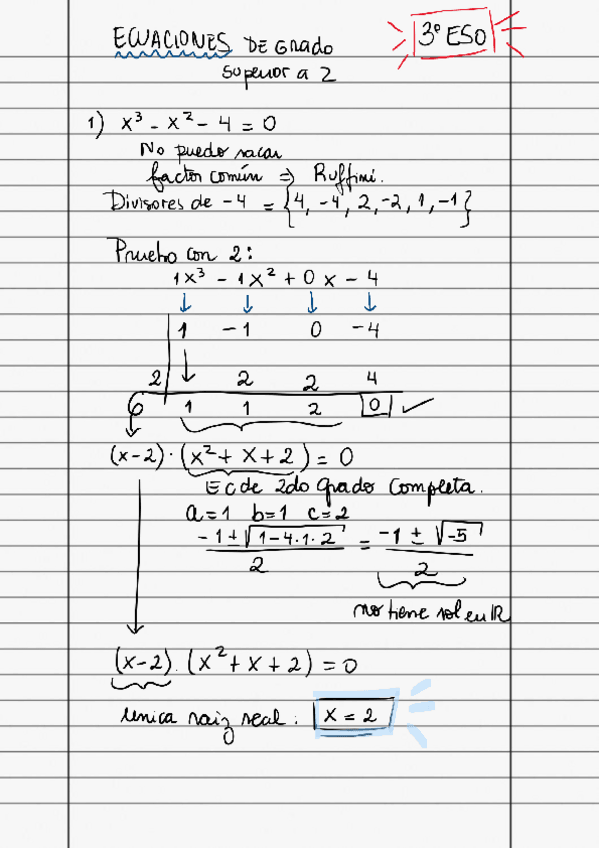 ECUACIONES DE Grado
3º ESO
superior a 2
1) x³ - x² - 4 = 0
No puedo sacar
factor común ⇒ Ruffini.
Divisores de -4 = {4, -4, 2, -2, 1, -1}
Pruebo con 2:
1x³ - 1x² + 0x - 4
1 -1 0 -4
2 2 2 4
1 1 2 0 ✓
(x-2)·(x²+x+2) = 0
Ec de 2do Grado Completa.
a=1 b=1 c=2
-1±√1-4·1·2 / 2 = -1 ± √-5 / 2
no tiene sol en ℝ
(x-2)·(x²+x+2) = 0
Unica raiz real: x = 2